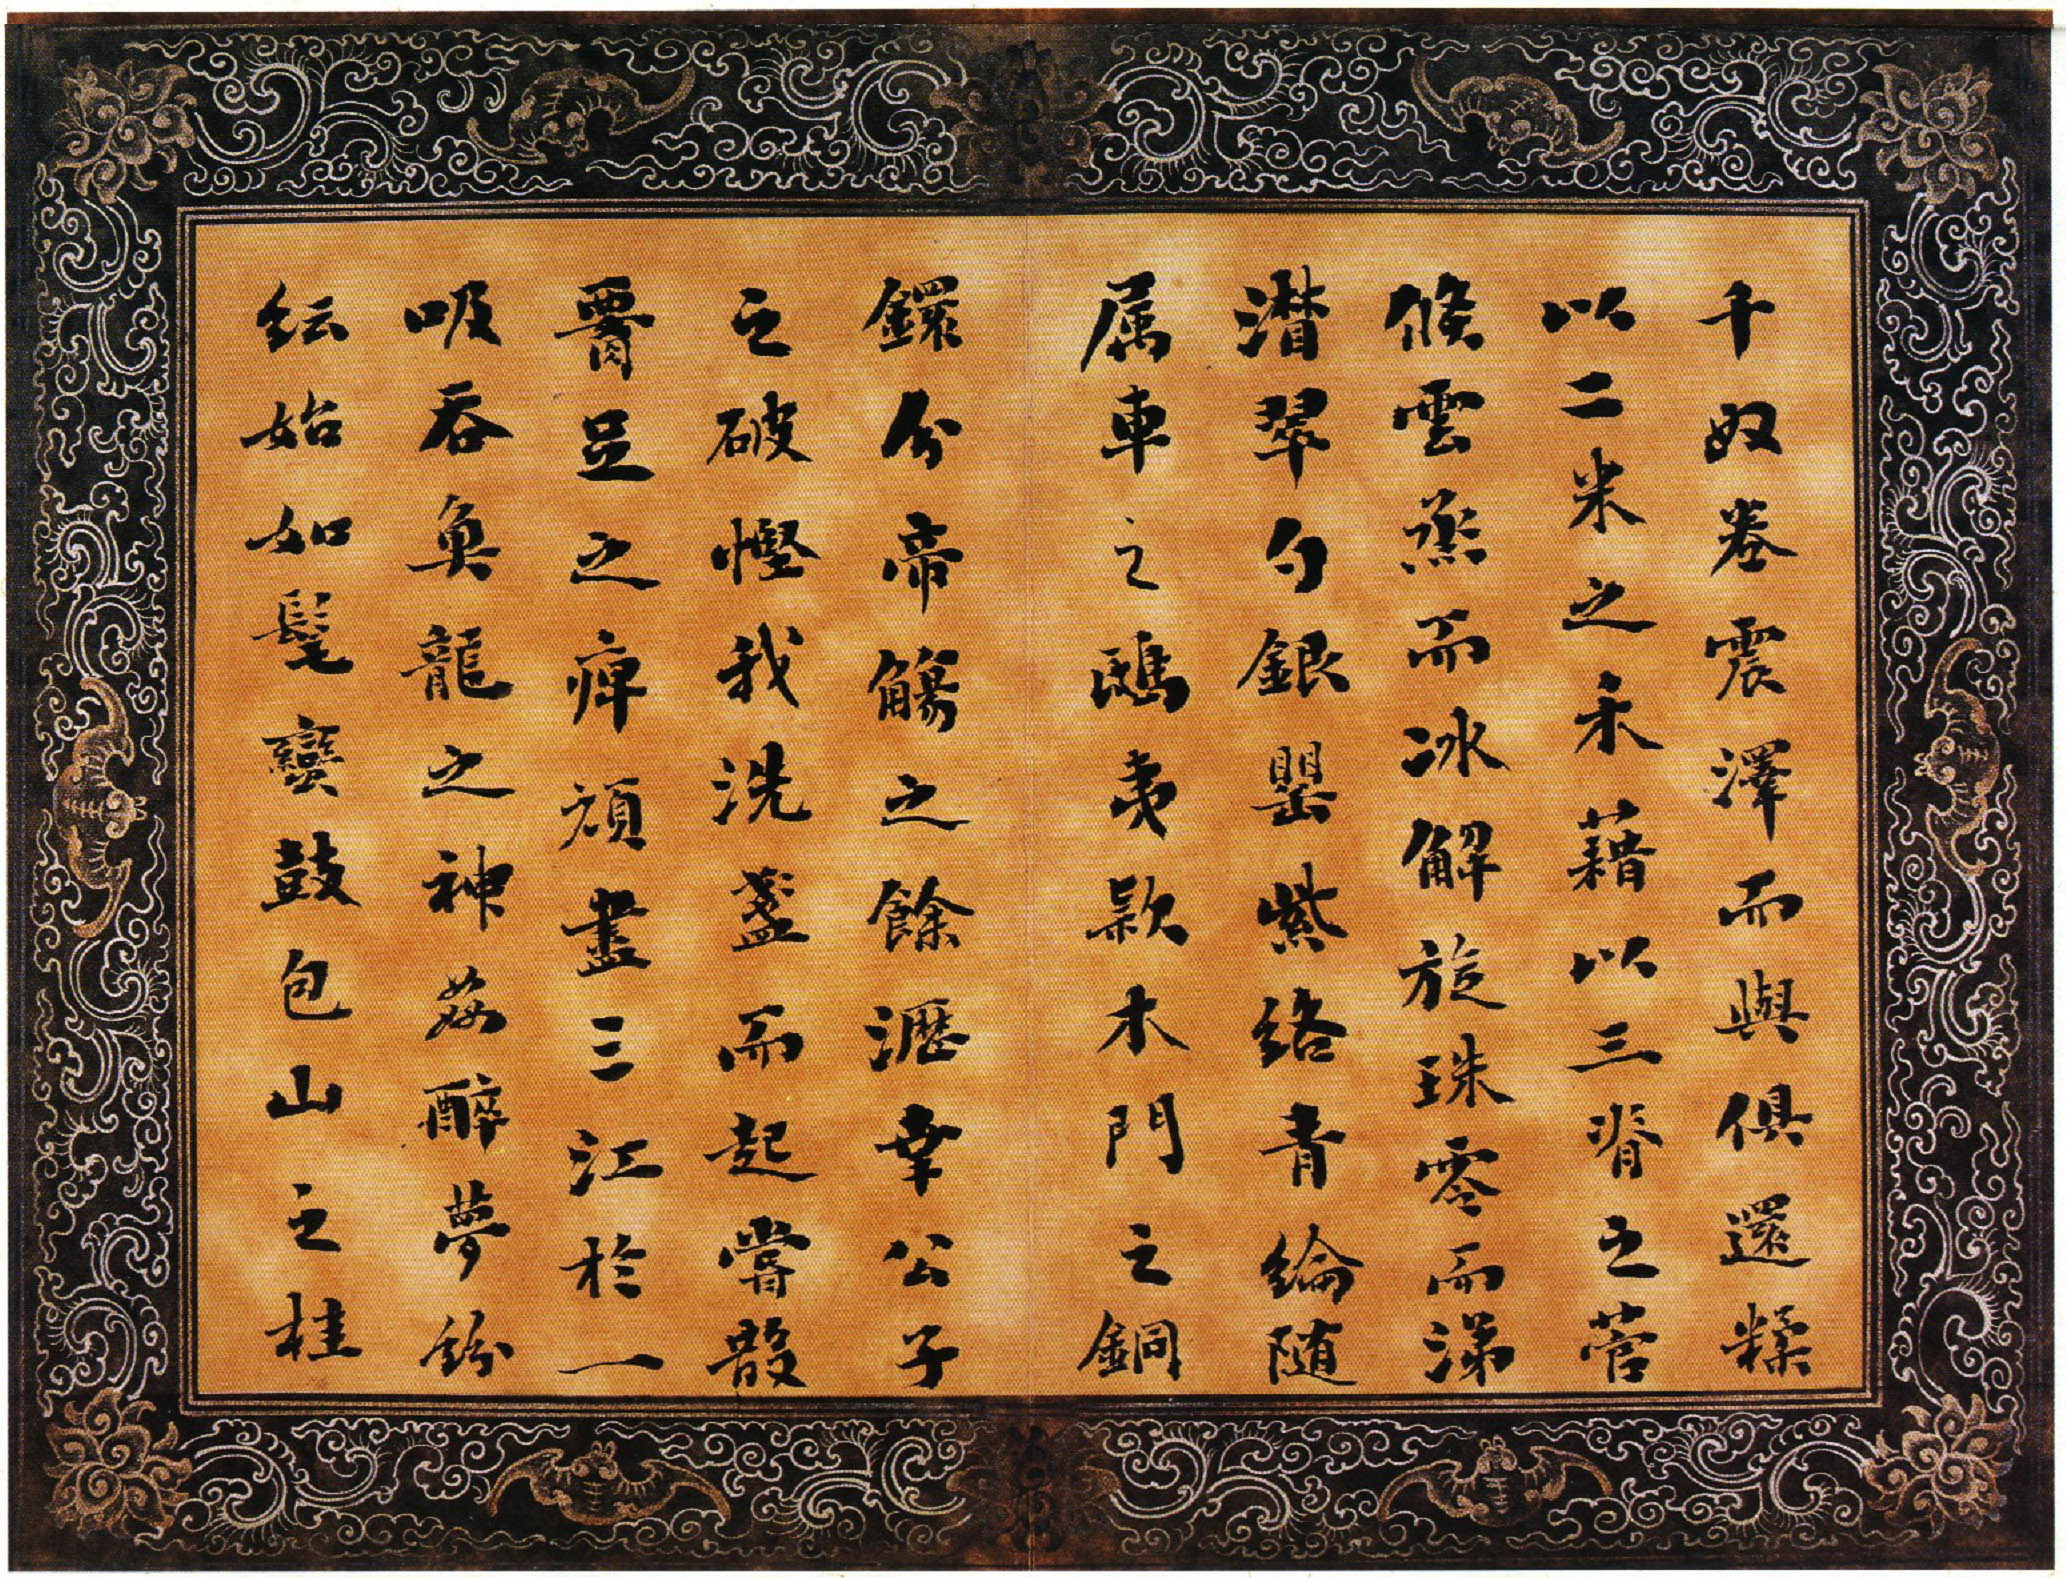 千奴卷震澤而與俱還糅
以二米之禾藉以三脊之菅
倏雲烝而冰解旋珠零而涕
潸翠勺銀罌紫絡青綸随
属車之鴟夷款木門之銅
鐶分帝觴之餘瀝幸公子
之破慳我洗盞而起嘗散
腰足之痺頑盡三江於一
吸吞魚龍之神姦醉夢紛
紜始如髦蠻鼓包山之桂